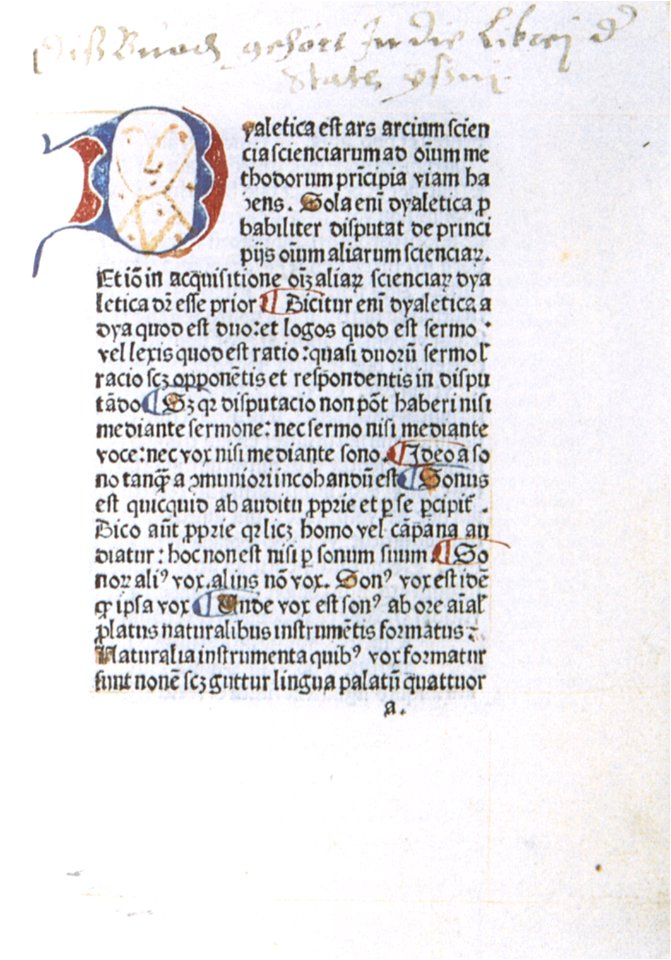 Diß Buoch gehort In die Librej d
statt ysni
Dyaletica est ars arcium scien
cia scienciarum ad oīum me
thodorum prīcipia viam ha
bens. Sola enī dyaletica ꝓ
babiliter disputat de princi
pijs oīum aliarum scienciaꝝ.
Et iō in acquisitione oīȝ aliaꝝ scienciaꝝ dya
letica dꝫ esse prior Dicitur enī dyaletica a
dya quod est duo: et logos quod est sermo
vel lexis quod est ratio: quasi duorū sermo l̛
racio scꝫ opponētis et respondentis in dispu
tādo Sꝫ qꝛ disputacio non pōt haberi nisi
mediante sermone: nec sermo nisi mediante
voce: nec vox nisi mediante sono. Ideo a so
no tanqꝫ a ꝯmuniori incohandū est Sonus
est quicquid ab auditu ꝓprie et ꝑ se ꝑcipit᷑.
Dico aūt ꝓprie qꝛ licꝫ homo vel cāpana au
diatur: hoc non est nisi ꝑ sonum suum. So
noꝝ aliꝰ vox. alius nō vox. Sonꝰ vox est idē
qꝫ ipsa vox Unde vox est sonꝰ ab ore aīal̛
ꝓlatus naturalibus instrumētis formatus:
Naturalia instrumenta quibꝰ vox formatur
sunt nouē scꝫ guttur lingua palatū quattuor
a.